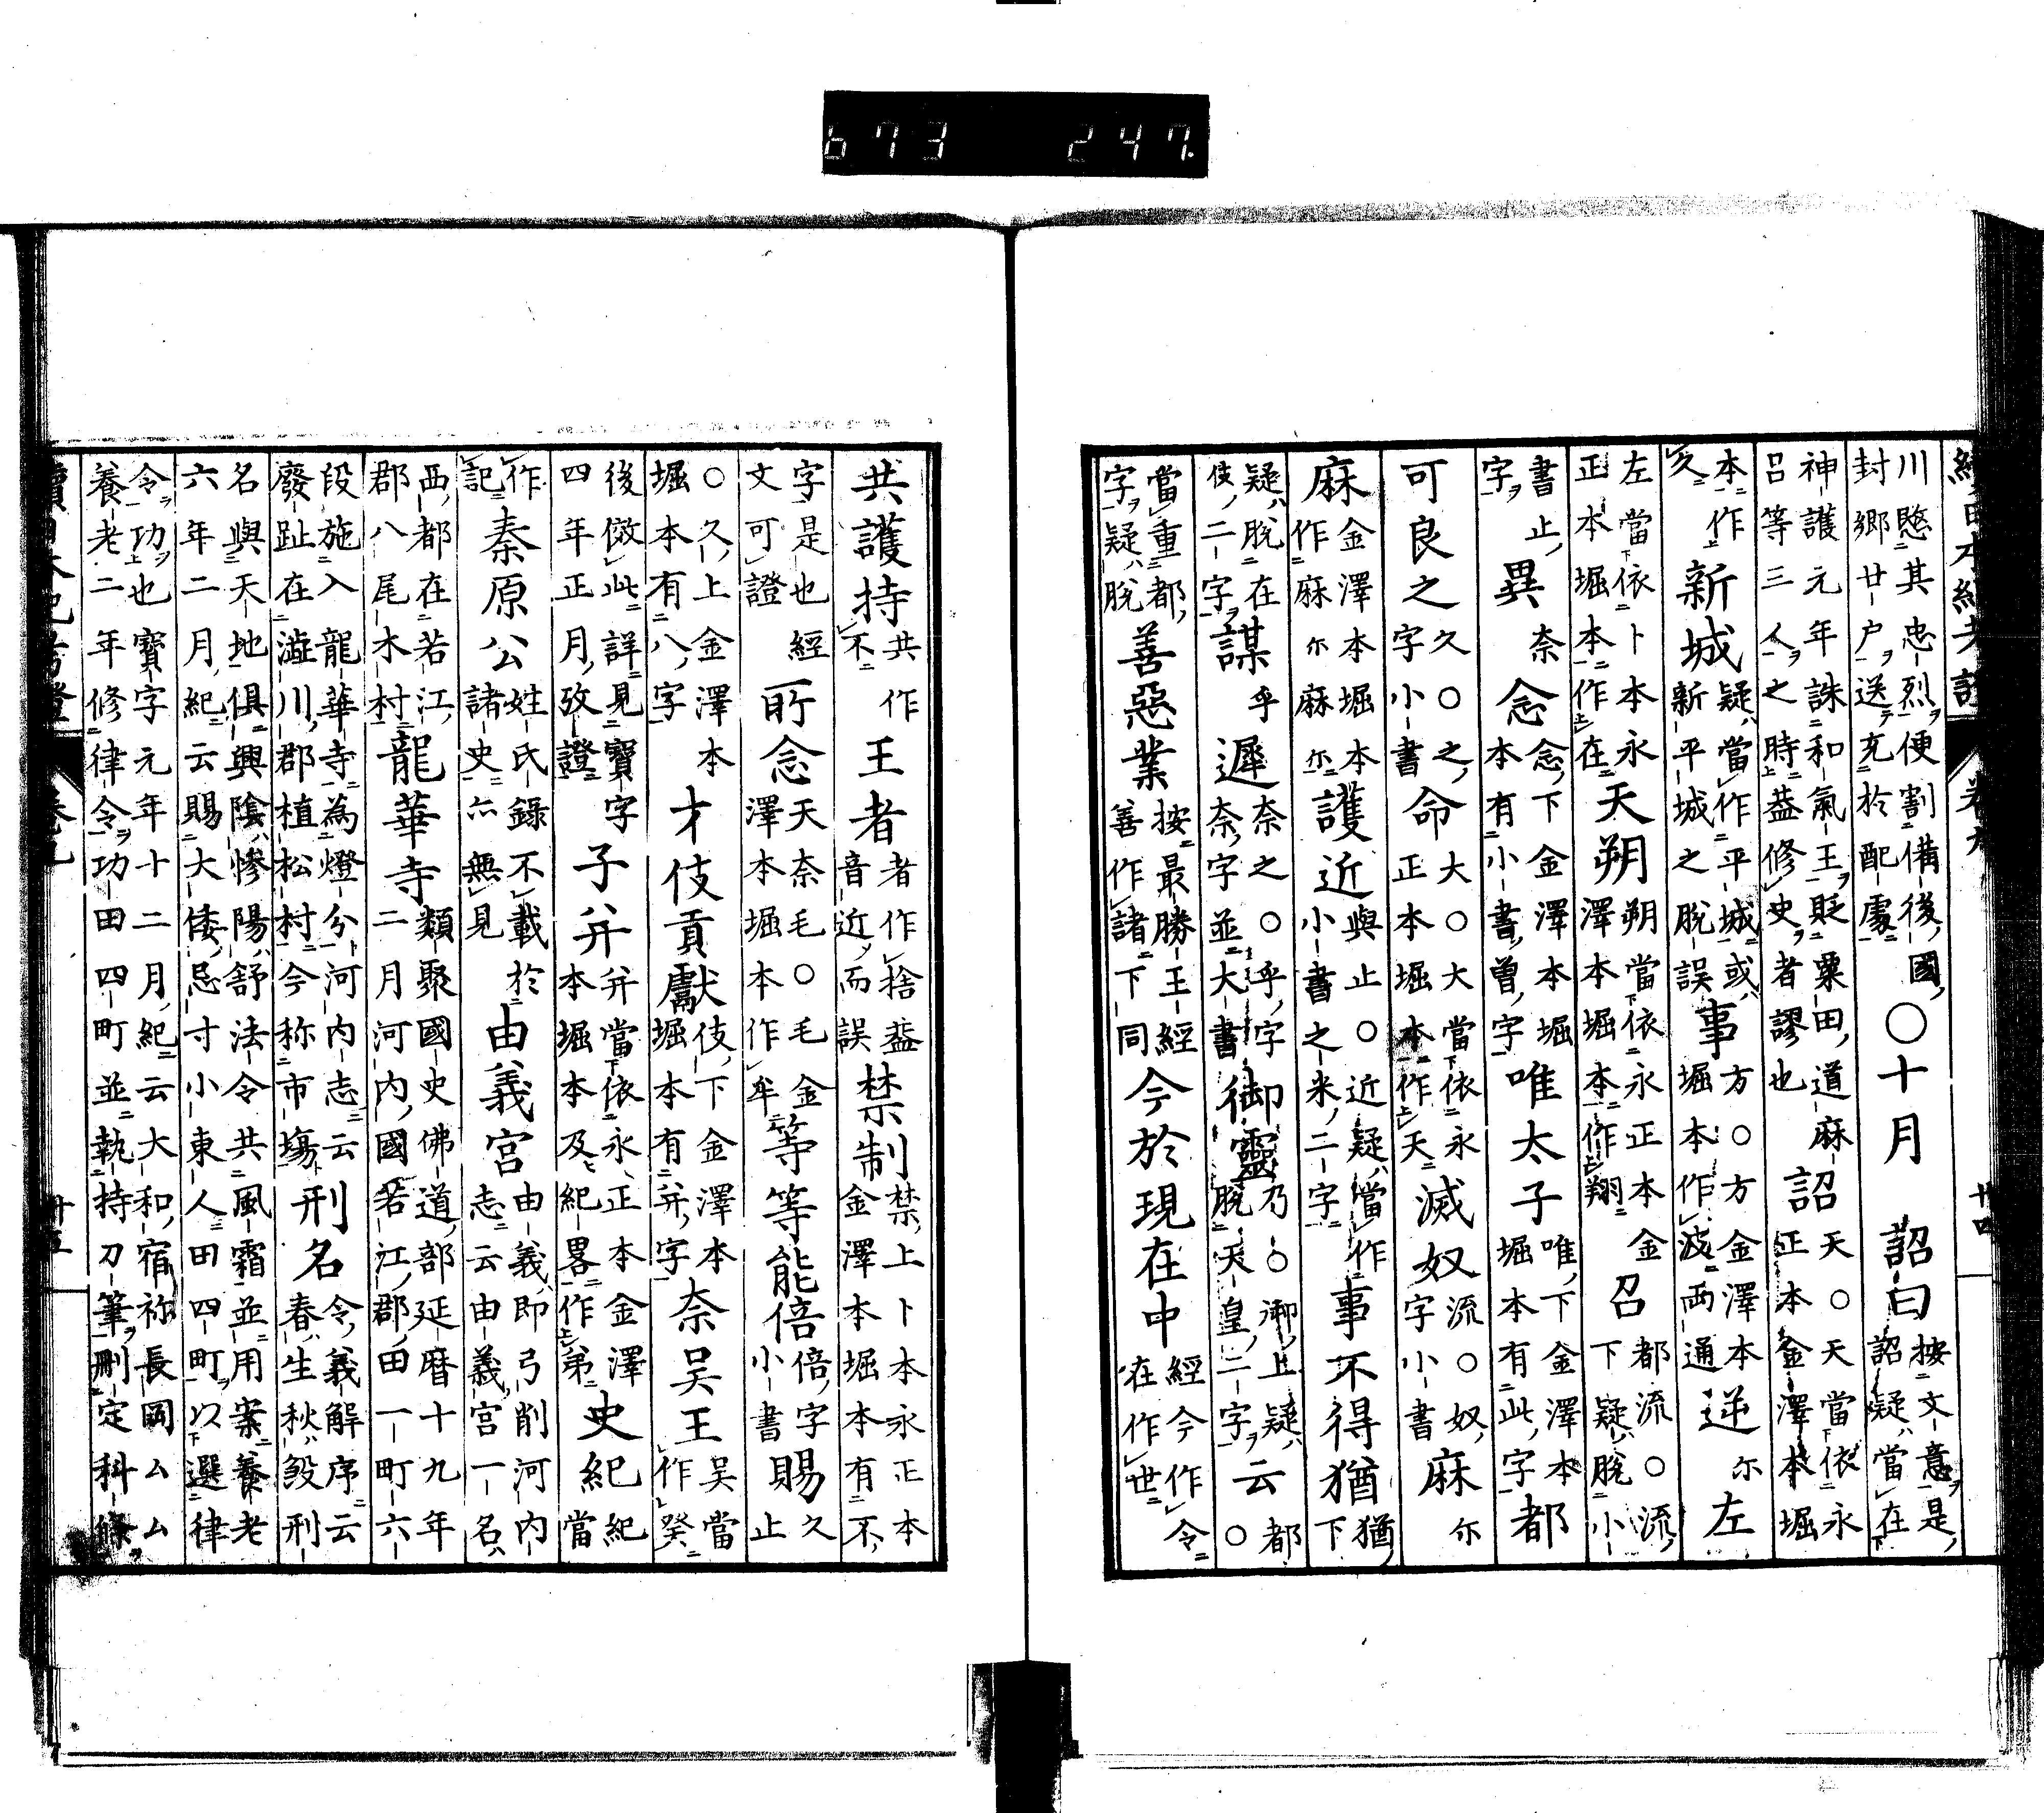 續日本紀考證 卷九 廿四
川愍其忠烈便割備後國
封郷廿戸送充於配處
○十月 詔曰
按文意是
詔疑當在
神護元年誅和氣王貶粟田道麻
呂等三人之時葢修史者謬也
詔
天○天當依永
正本金澤本堀
本作
久
新城
疑當作平城或
新平城之脱誤
事
方○方金澤本
堀本作波兩通
逆尓左
左當依卜本永
正本堀本作在
天朔
朔當依永正本金
澤本堀本作翔
召
都流○流
下疑脱小
書止
字
異奈念
念下金澤本堀
本有小書曽字
唯太子
唯下金澤本
堀本有此字
都
可良之
久○之
字小書
命
大○大當依永
正本堀本作天
滅奴
流○奴
字小書
麻尓
麻
金澤本堀本
作麻尓麻尓
護近
與止○近疑當作
小書之米二字
事不得猶
猶
下
疑脱在
使二字
謀乎遲
奈之○乎字
奈字並大書
御靈
乃○御上疑
脱天皇二字
云
都
○
當重都
字疑脱
善惡業
按最勝王經
善作諸下同
今於現在中
經今作令
在作世
共護持
共作
不
王者
者作捨葢
音近而誤
禁制
禁上卜本永正本
金澤本堀本有不
字是也經
文可證
所念
天奈毛○毛金
澤本堀本作牟
等等能倍
倍字
小書
賜
久
止
○久上金澤本
堀本有八字
才伎貢獻
伎下金澤本
堀本有幷字
奈吴王
吴當
作癸
後倣此詳見寳字
四年正月攷證
子幷
幷當依永正本金澤
本堀本及紀畧作弟
史紀
紀
當
作
記
秦原公
姓氏錄不載於
諸史亦無見
由義宮
由義即弓削河内
志云由義宮一名
西都在若江
郡八尾木村
龍華寺
類聚國史佛道部延暦十九年
二月河内國若江郡田一町六
段施入龍華寺為燈分河内志云
廢趾在澁川郡植松村今称市塲
刑名
令義解序云
春生秋殺刑
名與天地俱興陰慘陽舒法令共風霜並用案養老
六年二月紀云賜大倭忌寸小東人田四町以選律
令功也寳字元年十二月紀云大和宿祢長岡ムムム
養老二年修律令功田四町並執持刀筆刪定科條
續日本紀考證 卷九 廿五